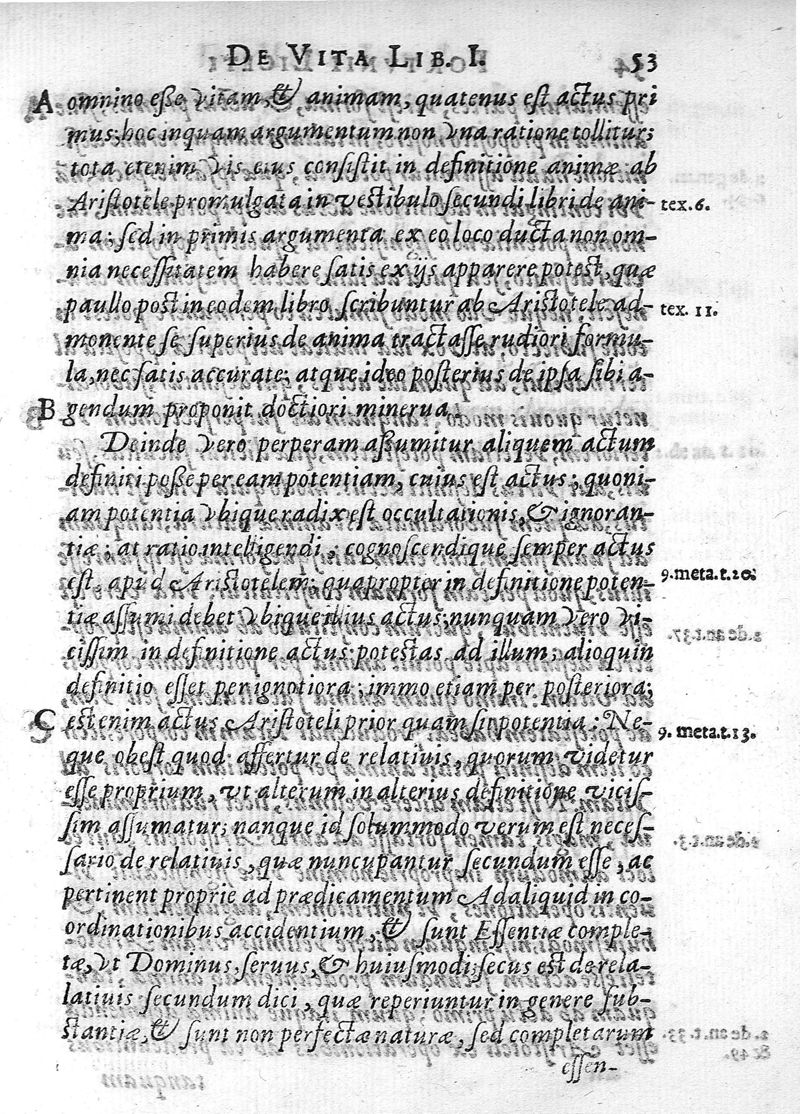 DE VITA LIB. I. 53
A omnino eſſe vitam, & animam, quatenus eſt actus pri
mus; hoc inquam argumentum non vna ratione tollitur;
tota etenim vis eius conſiſtit in definitione animæ ab
Ariſtotele promulgata in veſtibulo ſecundi libri de ani- tex. 6.
ma; ſed in primis argumenta ex eo loco ducta non om-
nia neceſſitatem habere ſatis ex ijs apparere poteſt, quæ
paullo poſt in eodem libro ſcribuntur ab Ariſtotele ad- tex. 11.
monente ſe ſuperius de anima tractaſſe rudiori formu-
la, nec ſatis accurate; atque ideo poſterius de ipſa ſibi a-
B gendum proponit doctiori minerua.
Deinde vero perperam aſſumitur aliquem actum
definiri poſſe per eam potentiam, cuius eſt actus; quoni-
am potentia vbique radix eſt occultationis, & ignoran-
tiæ; at ratio intelligendi, cognoſcendique ſemper actus
eſt, apud Ariſtotelem; quapropter in definitione poten- 9. meta. t. 20.
tiæ aſſumi debet vbique illius actus; nunquam vero vi-
ciſſim in definitione actus poteſtas ad illum; alioquin
definitio eſſet per ignotiora; immo etiam per poſteriora;
C eſt enim actus Ariſtoteli prior quam ſit potentia: Ne- 9. meta. t. 13.
que obeſt quod affertur de relatiuis, quorum videtur
eſſe proprium, vt alterum in alterius definitione viciſ-
ſim aſſumatur; nanque id ſolummodo verum eſt neceſ-
ſario de relatiuis, quæ nuncupantur ſecundum eſſe, ac
pertinent proprie ad prædicamentum Ad aliquid in co-
ordinationibus accidentium, & ſunt Eſſentiæ comple-
tæ, vt Dominus, ſeruus, & huiuſmodi; ſecus eſt de rela-
latiuis ſecundum dici, quæ reperiuntur in genere ſub-
ſtantiæ, & ſunt non perfectæ naturæ, ſed completarum
eſſen-